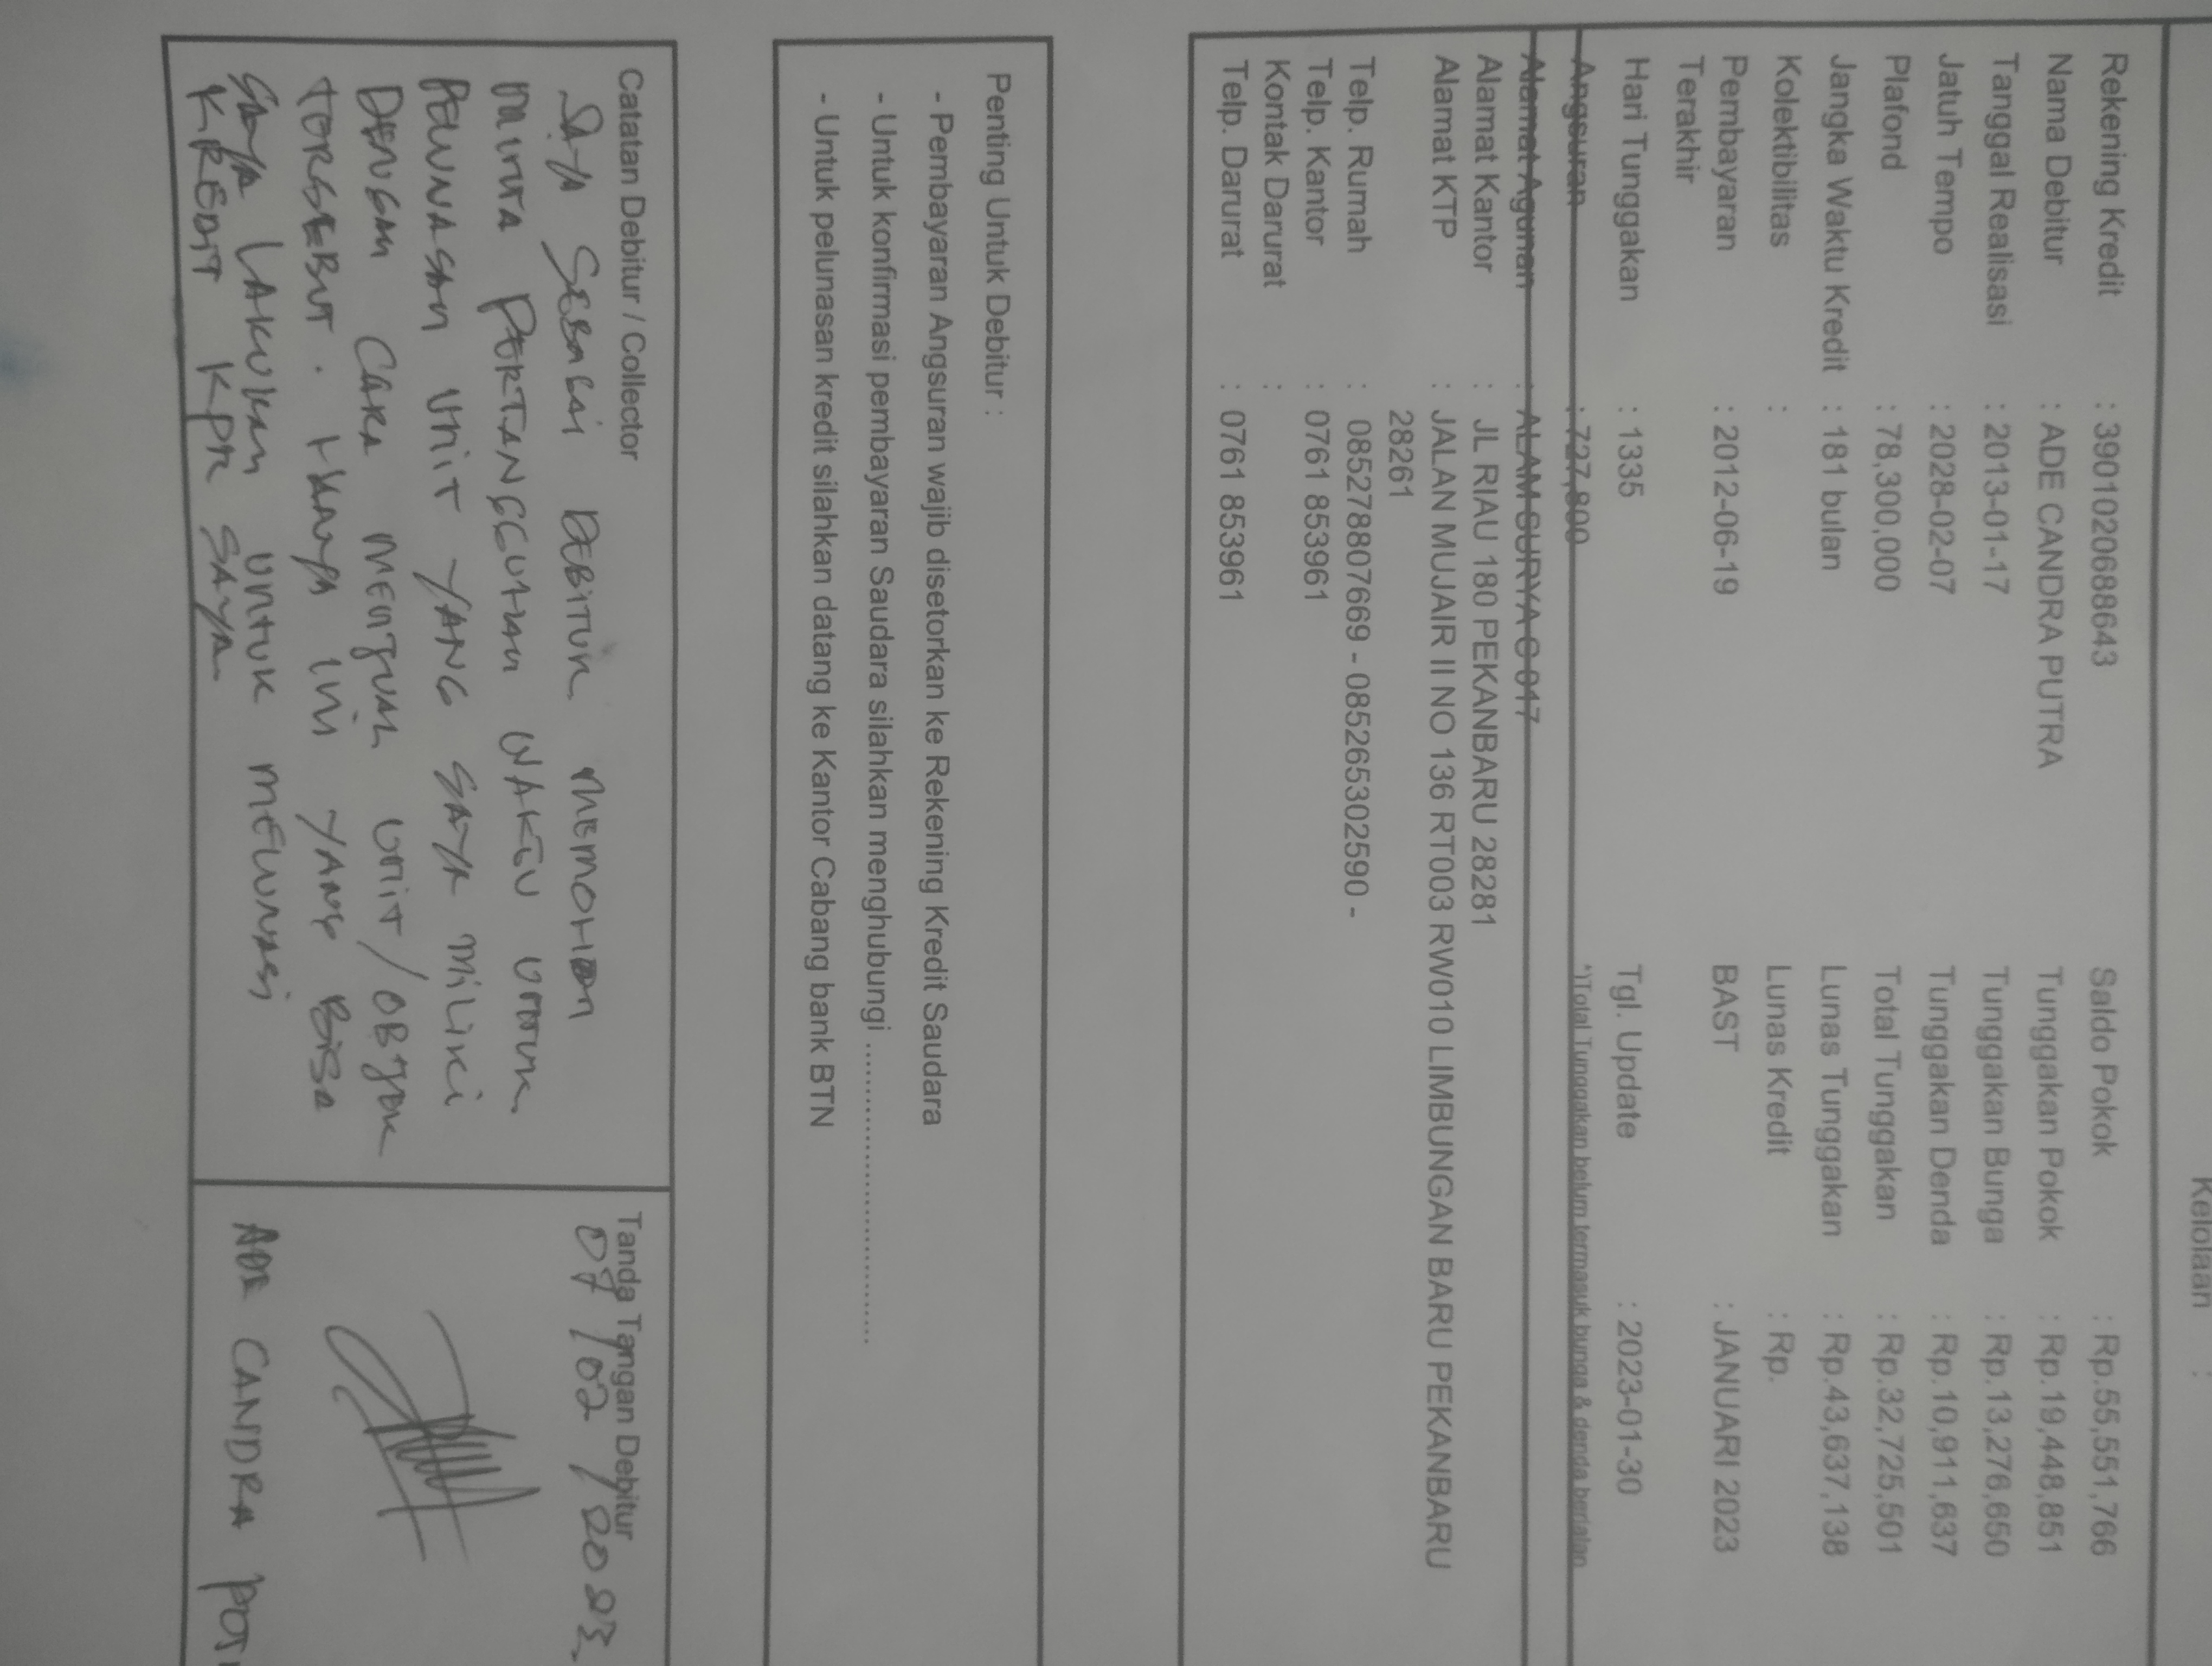 Kelolaan :
Rekening Kredit : 3901020688643 Saldo Pokok : Rp.55,551,766
Nama Debitur : ADE CANDRA PUTRA Tunggakan Pokok : Rp.19,448,851
Tanggal Realisasi : 2013-01-17 Tunggakan Bunga : Rp.13,276,650
Jatuh Tempo : 2028-02-07 Tunggakan Denda : Rp.10,911,637
Plafond : 78,300,000 Total Tunggakan : Rp.32,725,501
Jangka Waktu Kredit : 181 bulan Lunas Tunggakan : Rp.43,637,138
Kolektibilitas : Lunas Kredit : Rp.
Pembayaran : 2012-06-19 BAST : JANUARI 2023
Terakhir
Hari Tunggakan : 1335 Tgl. Update : 2023-01-30
Angsuran : 727,800 *)Total Tunggakan belum termasuk bunga & denda berjalan
Alamat Agunan : ALAM SURYA C 017
Alamat Kantor : JL RIAU 180 PEKANBARU 28281
Alamat KTP : JALAN MUJAIR II NO 136 RT003 RW010 LIMBUNGAN BARU PEKANBARU
28261
Telp. Rumah : 085278807669 - 085265302590 -
Telp. Kantor : 0761 853961
Kontak Darurat :
Telp. Darurat : 0761 853961
Penting Untuk Debitur :
- Pembayaran Angsuran wajib disetorkan ke Rekening Kredit Saudara
- Untuk konfirmasi pembayaran Saudara silahkan menghubungi ..............................
- Untuk pelunasan kredit silahkan datang ke Kantor Cabang bank BTN
Catatan Debitur / Collector
SAYA SEBAGAI DEBITUR MEMOHON
MINTA PERTANGGUHAN WAKTU UNTUK
PELUNASAN UNIT YANG SAYA MILIKI
DENGAN CARA MENJUAL UNIT/OBJEK
TERSEBUT. HANYA INI YANG BISA
SAYA LAKUKAN UNTUK MELUNASI
KREDIT KPR SAYA
Tanda Tangan Debitur
07/02/2023
ADE CANDRA